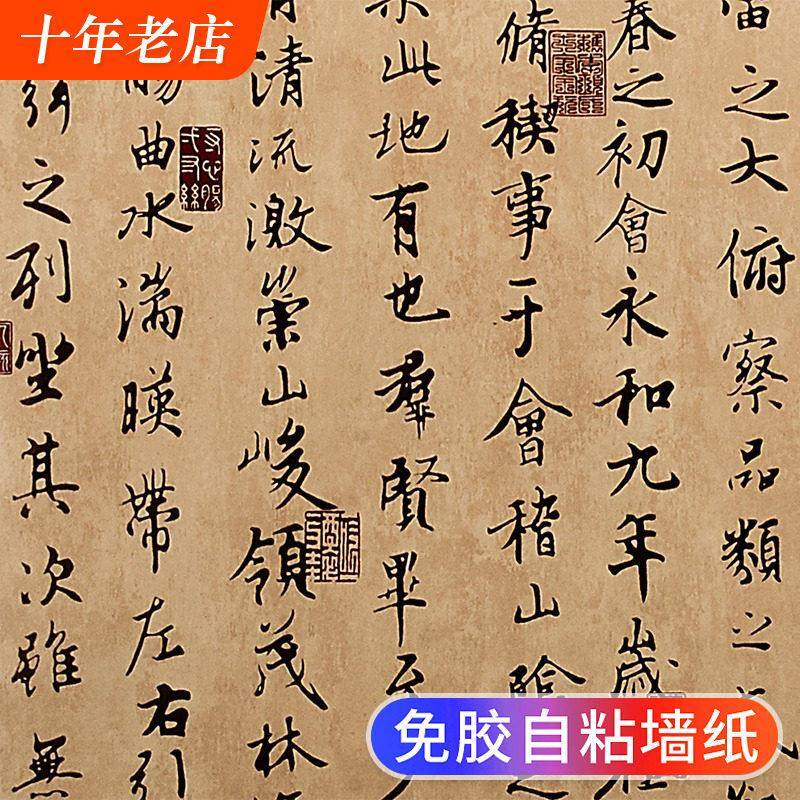 十年老店
之大俯察品類之
春之初會永和九年歲在
脩稧事于會稽山陰之
此地有也羣賢畢至
清流激崇山峻領茂林
觴曲水湍暎帶左右引
之列坐其次雖無
免胶自粘墙纸